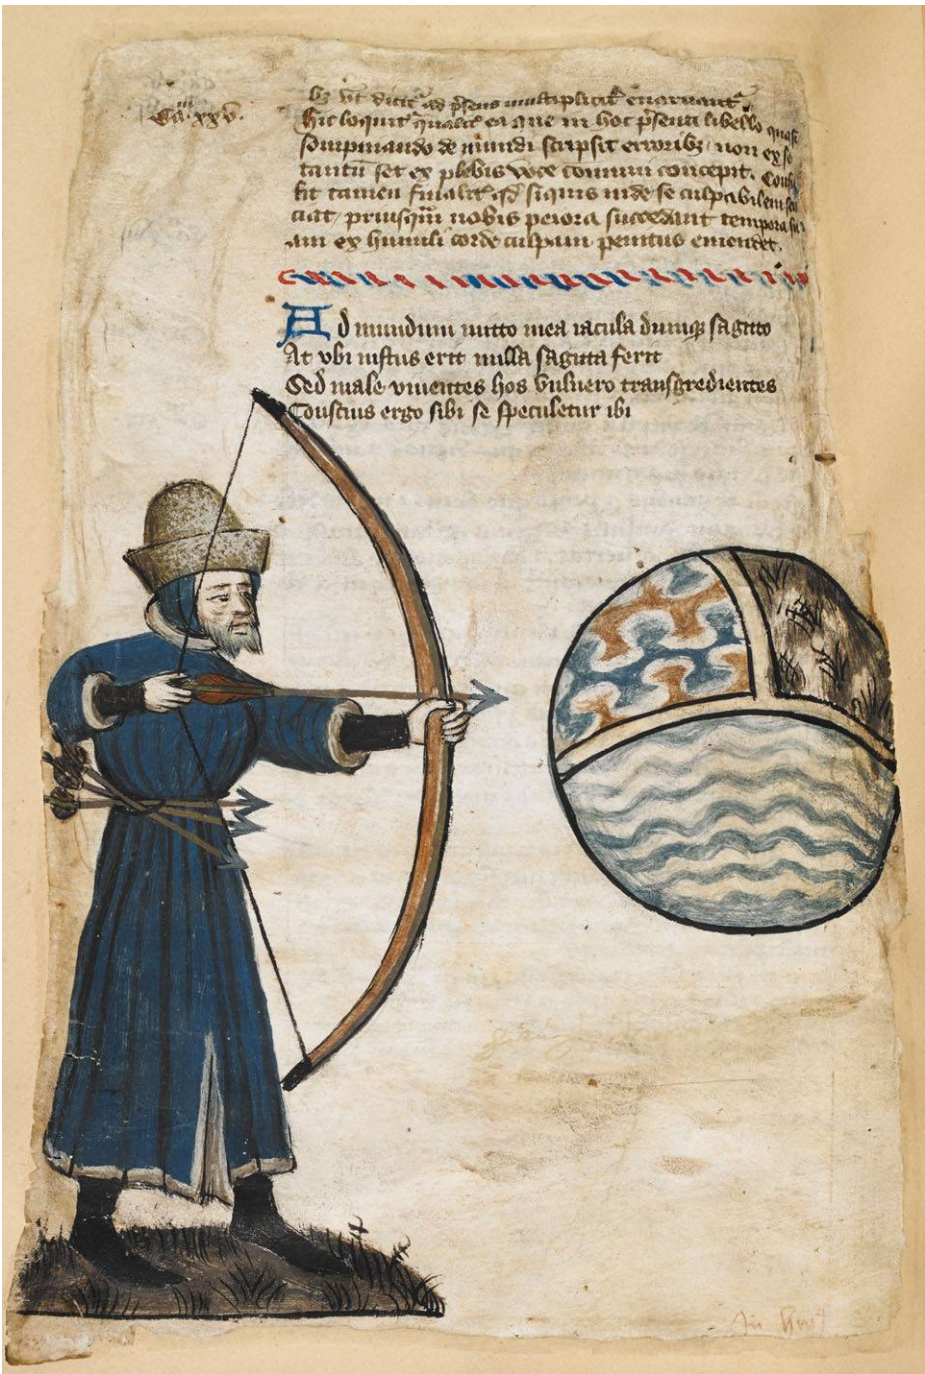 Ca. xxv.
hic loquit qualit ea que in hoc psenti libello quasi
sompniando de mundi scripsit erroribz non ex se
tantu set ex plebis voce communi concepit. Consu
lit tamen finalit qd siquis inde se culpabilem sen
ciat priusqm nobis peiora succedant tempora su
am ex humili corde culpam penitus emendet.
Ad mundum mitto mea iacula dumqz sagitto
At vbi iustus erit nulla sagitta ferit
Sed male viuentes hos vulnero transgredientes
Conscius ergo sibi se speculetur ibi